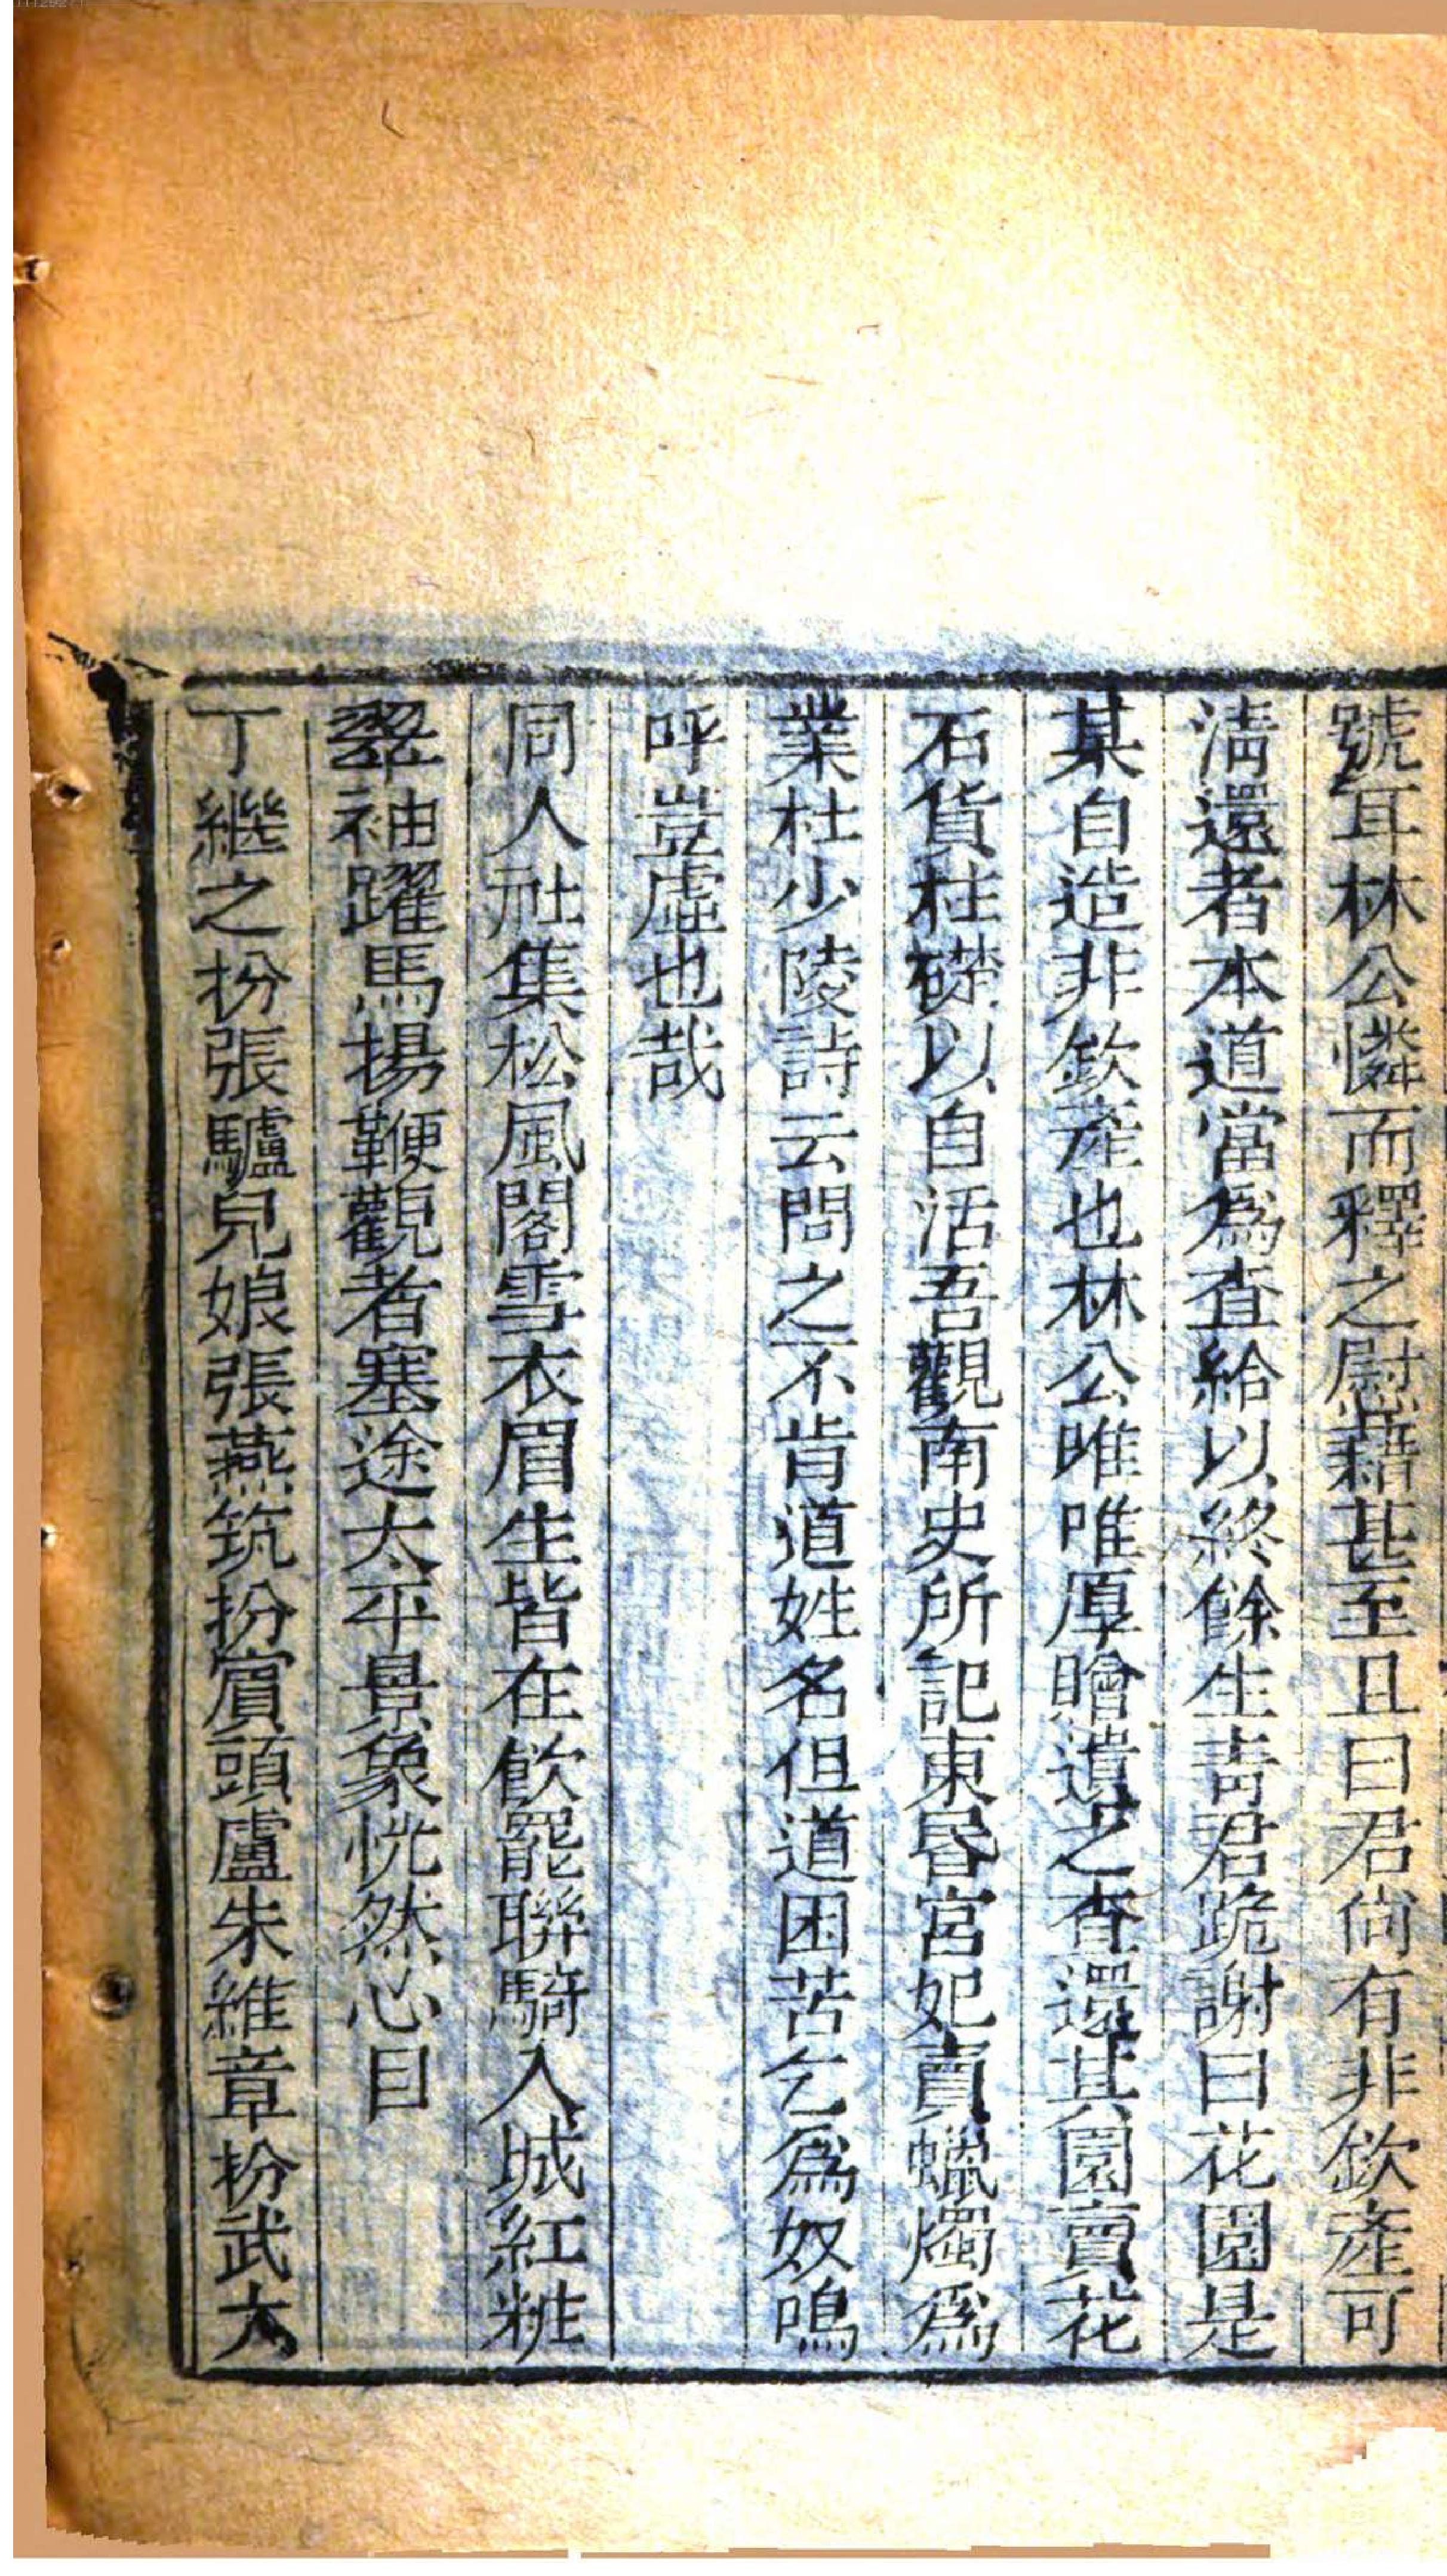 號耳林公憐而釋之慰藉甚至且曰君尚有非欽產可
淸還者本道當爲查給以終餘生靑君跪謝曰花園是
某自造非欽産也林公唯唯厚贈遺之查還其園賣花
石貨柱礎以自活吾觀南史所記東昏宮妃賣蠟燭爲
業杜少陵詩云問之不肯道姓名但道困苦乞爲奴鳴
呼豈虛也哉
同人社集松風閣雪衣眉生皆在飮罷聯騎入城紅粧
翠袖躍馬揚鞭觀者塞途太平景象恍然心目
丁繼之扮張驢兒娘張燕筑扮賔頭盧朱維章扮武大